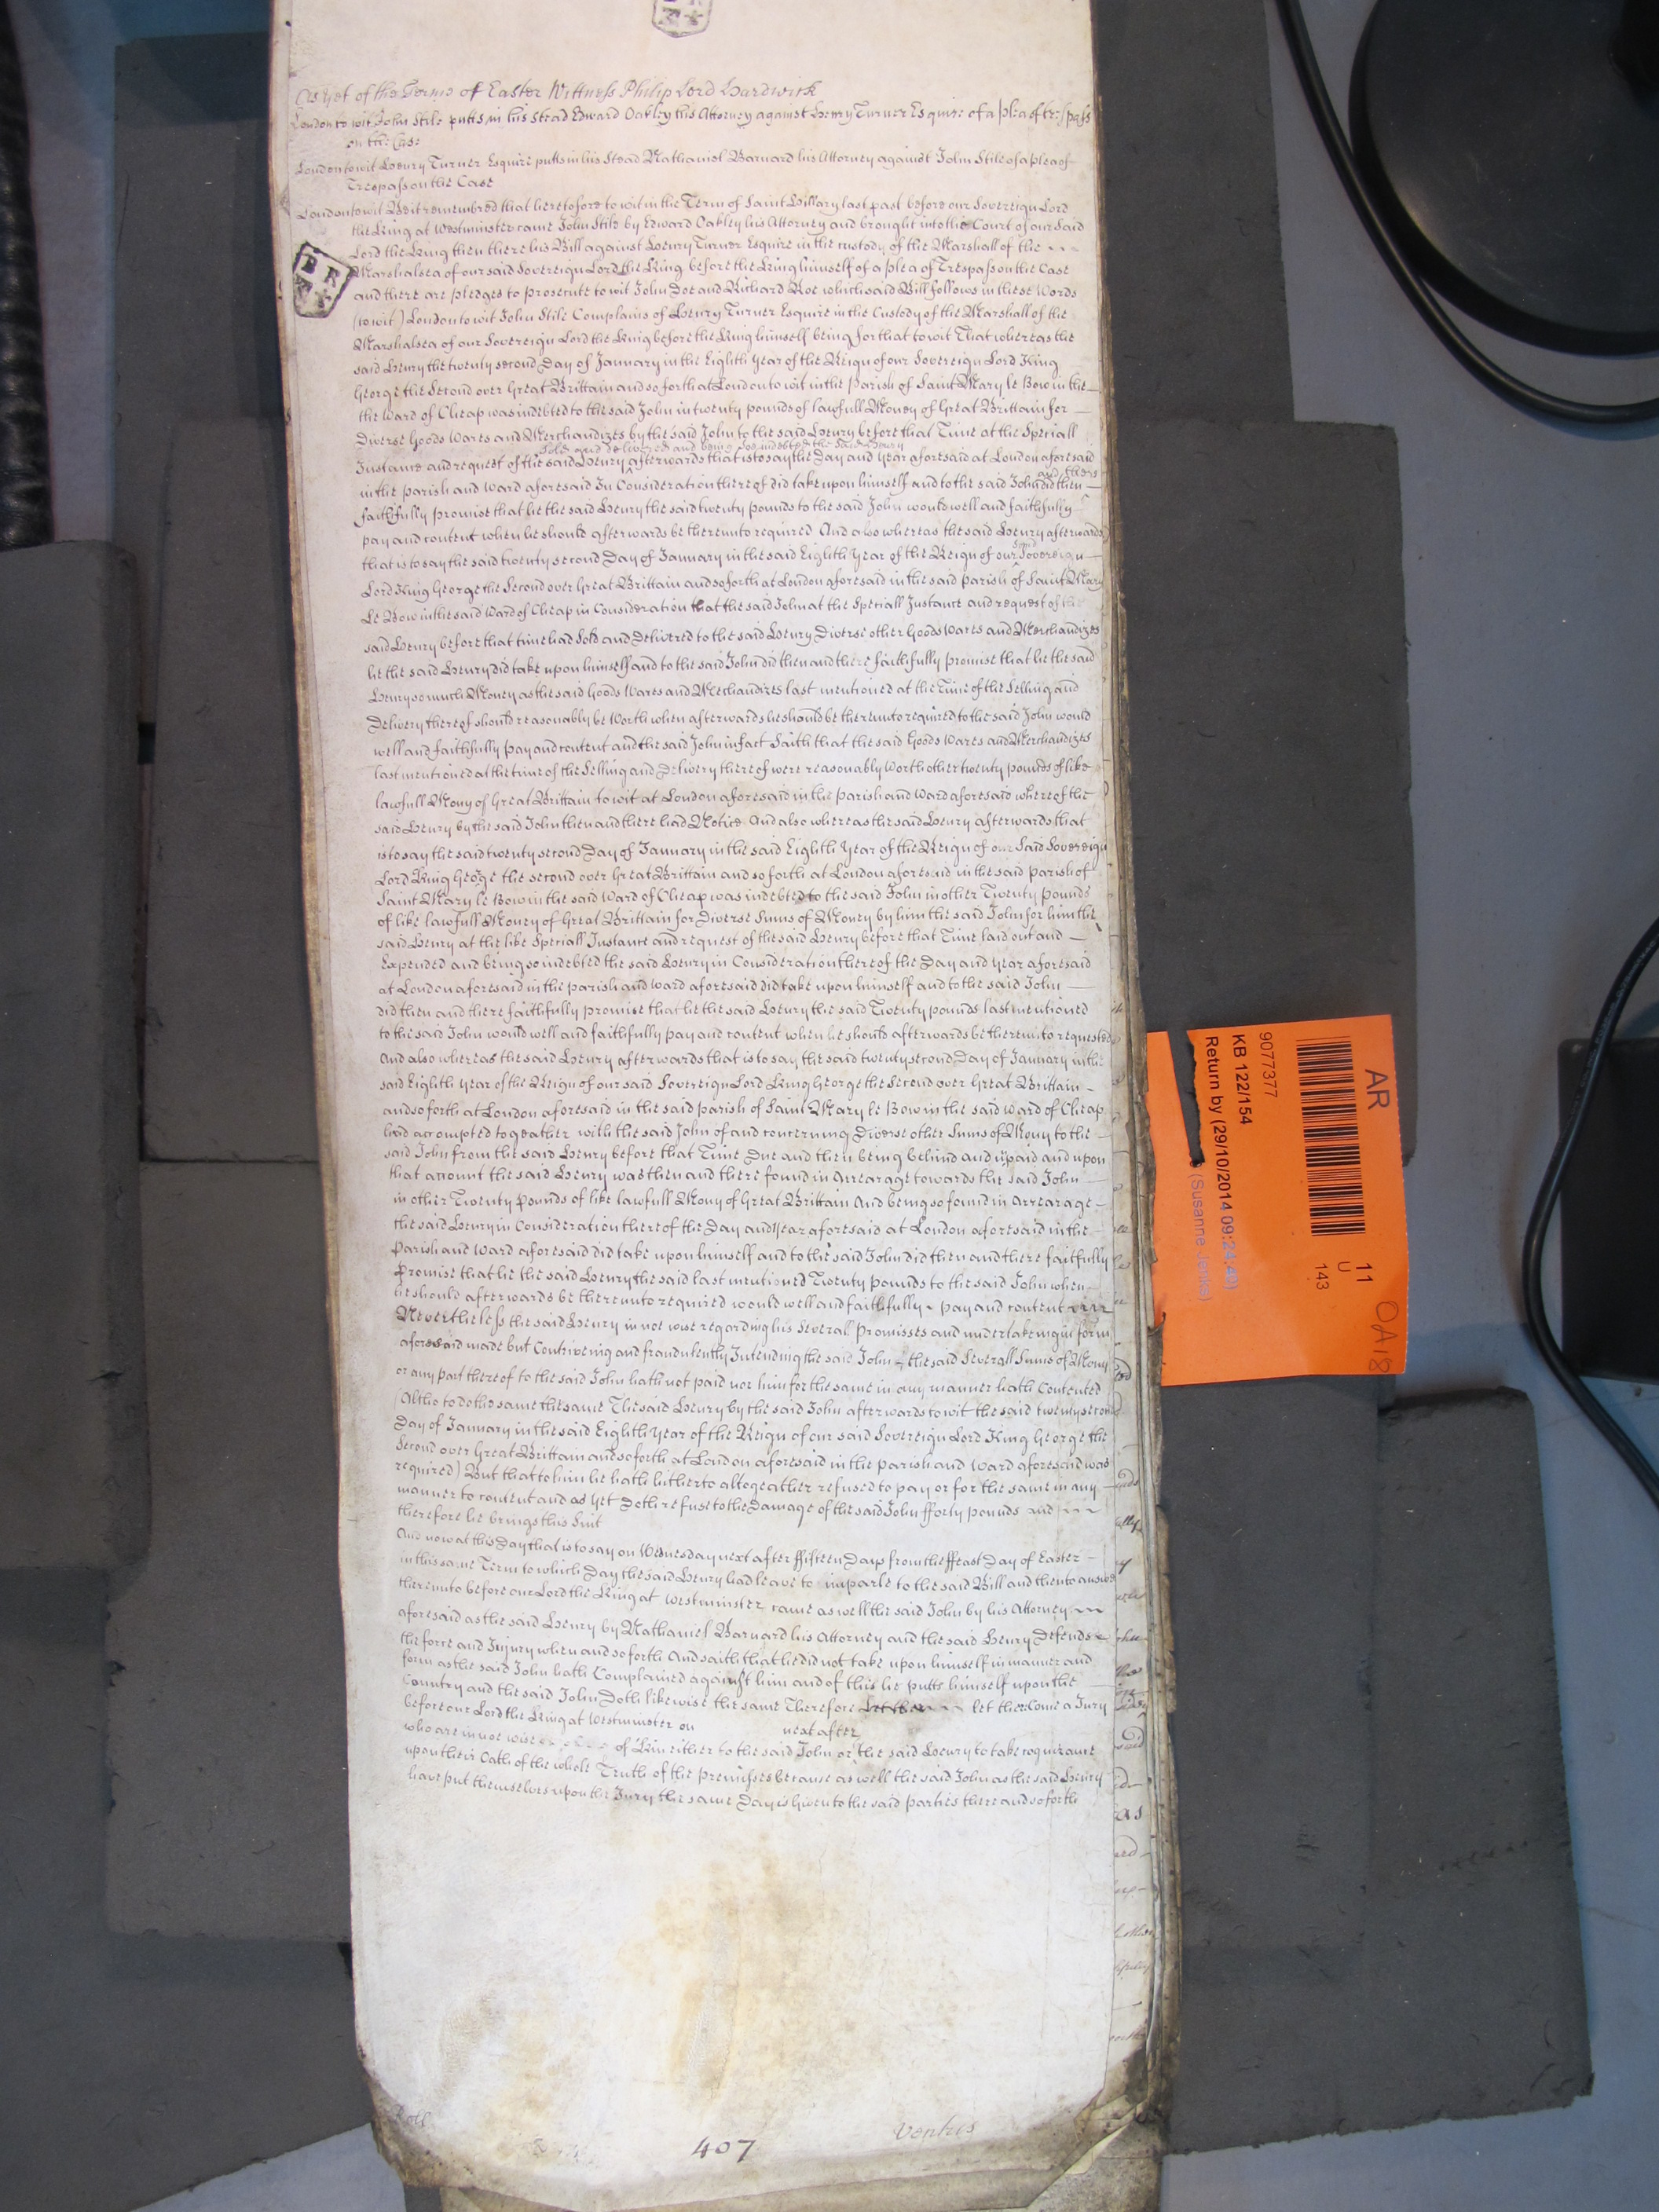 As Yet of the Terme of Easter Wittness Philip Lord Hardwick
London to wit John Stile putts in his Stead Edward Oakley his Attorney against Henry Turner Esquire of a plea of trespass
on the Case
London to wit Henry Turner Esquire putts in his Stead Nathaniel Barnard his Attorney against John Stile of a plea of
Trespass on the Case
London to wit Be it remembred that heretofore to wit in the Term of Saint Hillary last past before our Sovereign Lord
the King at Westminster came John Stile by Edward Oakley his Attorney and brought into the Court of our Said
Lord the King then there his Bill against Henry Turner Esquire in the custody of the Marshall of the
Marshalsea of our said Sovereign Lord the King before the King himself of a plea of Trespass on the Case
and there are pledges to prosecute to wit John Doe and Richard Roe which said Bill follows in these Words
(to wit) London to wit John Stile Complains of Henry Turner Esquire in the Custody of the Marshall of the
Marshalsea of our Sovereign Lord the King before the King himself being for that to wit That whereas the
said Henry the twenty second Day of January in the Eighth Year of the Reign of our Sovereign Lord King
George the Second over Great Brittain and so forth at London to wit in the parish of Saint Mary le Bow in the
the Ward of Cheap was indebted to the said John in twenty pounds of lawfull Money of Great Brittain for
Diverse Goods Wares and Merchandizes by the said John to the said Henry before that Time at the Speciall
sold and delivered and being so indebted the said Henry
Instance and request of the said Henry afterwards that is to say the Day and Year aforesaid at London aforesaid
and there
in the parish and Ward aforesaid In Consideration thereof did take upon himself and to the said John did then
faithfully promise that he the said Henry the said twenty pounds to the said John would well and faithfully
pay and content when he should afterwards be thereunto required And also whereas the said Henry afterwards
said
that is to say the said twenty second Day of January in the said Eighth Year of the Reign of our Sovereign
Lord King George the Second over Great Brittain and so forth at London aforesaid in the said parish of Saint Mary
Le Bow in the said Ward of Cheap in Consideration that the said John at the Speciall Instance and request of the
said Henry before that time had Sold and Delivered to the said Henry Diverse other Goods Wares and Merchandizes
he the said Henry did take upon himself and to the said John did then and there faithfully promise that he the said
Henry so much Money as the said Goods Wares and Merchandizes last mentioned at the Time of the Selling and
Delivery thereof should reasonably be Worth when afterwards he should be thereunto required to the said John would
well and faithfully pay and content and the said John in fact Saith that the said Goods Wares and Merchandizes
last mentioned at the time of the Selling and Delivery thereof were reasonably Worth other twenty pounds of like
lawfull Mony of Great Brittain to wit at London aforesaid in the parish and Ward aforesaid whereof the
said Henry by the said John then and there had Notice And also whereas the said Henry afterwards that
is to say the said twenty second Day of January in the said Eighth Year of the Reign of our Said Sovereign
Lord King George the second over Great Brittain and so forth at London aforesaid in the said parish of
Saint Mary le Bow in the said Ward of Cheap was indebted to the said John in other Twenty pounds
of like lawfull Money of Great Brittain for Diverse Sums of Money by him the said John for him the
said Henry at the like Speciall Instance and request of the said Henry before that Time laid out and
Expended and being so indebted the said Henry in Consideration thereof the Day and Year aforesaid
at London aforesaid in the parish and Ward aforesaid did take upon himself and to the said John
did then and there faithfully promise that he the said Henry the said Twenty pounds last mentioned
to the said John would well and faithfully pay and content when he should afterwards be thereunto requested
And also whereas the said Henry afterwards that is to say the said twenty second Day of January in the
said Eighth Year of the Reign of our said Sovereign Lord King George the Second over Great Brittain
and so forth at London aforesaid in the said parish of Saint Mary le Bow in the said Ward of Cheap
had accompted togeather with the said John of and concerning Diverse other Sums of Mony to the
said John from the said Henry before that Time Due and then being behind and unpaid and upon
that account the said Henry was then and there found in Arrearage towards the said John
in other Twenty pounds of like lawfull Mony of Great Brittain And being so found in Arrearage
the said Henry in Consideration thereof the Day and Year aforesaid at London aforesaid in the
Parish and Ward aforesaid did take upon himself and to the said John did then and there faithfully
Promise that he the said Henry the said last mentioned Twenty pounds to the said John when
he should afterwards be thereunto required would well and faithfully pay and content
Nevertheless the said Henry in not wise regarding his Severall Promisses and undertaking in form
aforesaid made but Contriveing and fraudulently Intending the said John the said Severall Sums of Mony
or any part thereof to the said John hath not paid nor him for the same in any manner hath Contented
(Altho to do the same the same The said Henry by the said John afterwards to wit the said twenty second
Day of January in the said Eighth Year of the Reign of our said Sovereign Lord King George the
Second over Great Brittain and so forth at London aforesaid in the parish and Ward aforesaid was
required) But that to him he hath hitherto altogeather refused to pay or for the same in any
manner to content and as Yet Doth refuse to the Damage of the said John fforty pounds and
therefore he brings this Suit
And now at this Day that is to say on Wednesday next after ffifteen Days from the ffeast Day of Easter
in this same Term to which Day the said Henry had leave to imparle to the said Bill and then to answer
thereunto before our Lord the King at Westminster came as well the said John by his Attorney
aforesaid as the said Henry by Nathaniel Barnard his Attorney and the said Henry Defends
the force and Injury when and so forth And saith that he did not take upon himself in manner and
form as the said John hath Complained against him and of this he putts himself upon the
Country and the said John Doth likewise the same Therefore let there Come a Jury
before our Lord the King at Westminster on next after
who are in not wise of Kin either to the said John or the said Henry to take cognizance
upon their Oath of the whole Truth of the premisses because as well the said John as the said Henry
have put themselves upon the Jury the same Day is Given to the said parties there and so forth
Roll
407
Ventris
AR
9077377
KB 122/154
Return by (29/10/2014 09:24:49)
(Susanne Jenks)
11
U
143
OA18